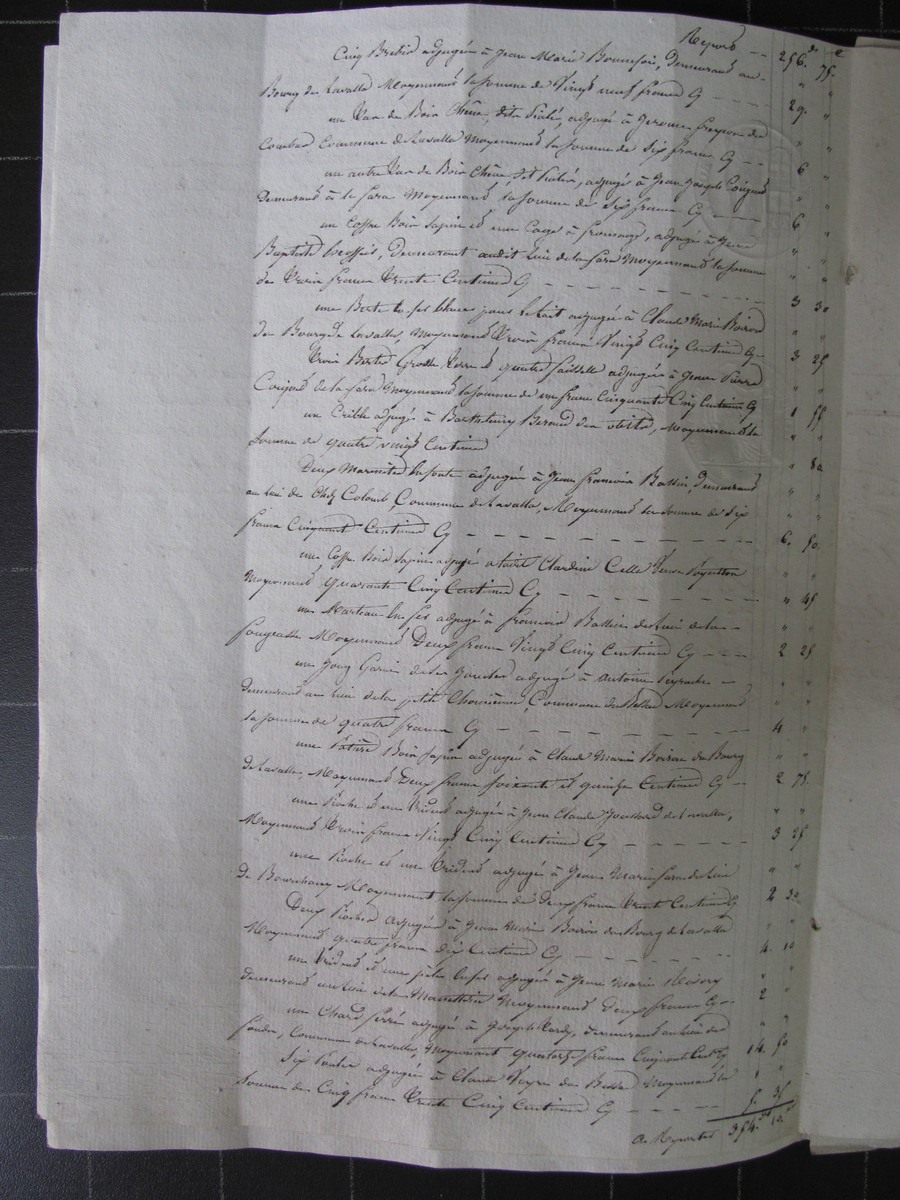 Report -- 256. 75.
Cinq Brebis adjugées à Jean Marie Bonnefoi, Demeurant au
Bourg de Lavalla Moyennant la somme de Vingt neuf francs Cy ---- 29. "
un Var de Bois Chêne, adjugé à Jerome freycon de
Combat Commune de Lavalla moyennant la somme de Six francs Cy -- 6 "
un autre Var de Bois Chêne, adjugé à Jean Joseph
Demeurant à la fara Moyennant la somme de Six francs Cy -- 6 "
un Coffre Bois Sapin et une Cage à fromage, adjugé à Jean
Baptiste, Demeurant audit Lieu de la fara Moyennant la somme
de Trois francs Trente Centimes Cy -------- 3 30
une Berte en fer blanc pour le lait adjugée à Claude Marie Boiron
du Bourg de Lavalla, Moyennant Trois francs Vingt Cinq Centimes Cy - 3 25
Trois Bertes Grosse Terre et quatre adjugées à Jean Pierre
de la fara Moyennant la somme de un franc Cinquante Cinq Centimes Cy 1 55
un Crible adjugé à Barthelemy Beraud, Moyennant la
Somme de quatre vingt Centimes " 80
Deux Marmites en fonte adjugées à Jean francois Bassin, Demeurant
au Lieu de Chez Colomb, Commune de Lavalla, Moyennant la Somme de Six
francs Cinquante Centimes Cy -------- 6. 50.
une Coffre Bois Sapin adjugé Claudine Celle Veuve
Moyennant Quarante Cinq Centimes Cy ------ " 45
un Marteau en fer adjugé à francois Bassin du Lieu de la -
fougeasse Moyennant Deux francs Vingt Cinq Centimes Cy ---- 2 25
un Joug Garni de adjugé à Antoine -
Demeurant au Lieu de la petite Commune du Bessat Moyennant
la somme de quatre francs Cy -------- 4 "
une Bois Sapin adjugée à Claude Marie Boiron du Bourg
de Lavalla, Moyennant Deux francs Soixante et quinze Centimes Cy - 2 75.
une Pioche et un Trident adjugé à Jean Claude de Lavalla,
Moyennant Trois francs Vingt Cinq Centimes Cy ------ 3 25
une Pioche et un Trident adjugé à Jean Marie fara du Lieu
De Bourchany Moyennant la somme de Deux francs Trente Centimes Cy 2 30
Deux Pioches adjugées à Jean Marie Boiron du Bourg de Lavalla
Moyennant quatre francs Dix Centimes Cy ------ 4. 10
un Trident et une pelle en fer adjugé à Jean Marie
demeurant au Lieu de la Moyennant Deux francs Cy - 2 "
un Chard ferré adjugé à Joseph Tardy, Demeurant au Lieu de
, Commune de Lavalla, Moyennant quatorze francs Cinquante Cent. Cy 14. 50
Six adjugée à Claude du Bessat Moyennant la
Somme de Cinq francs Trente Cinq Centimes Cy ---- 5. 35
à Reporter 354. 10.